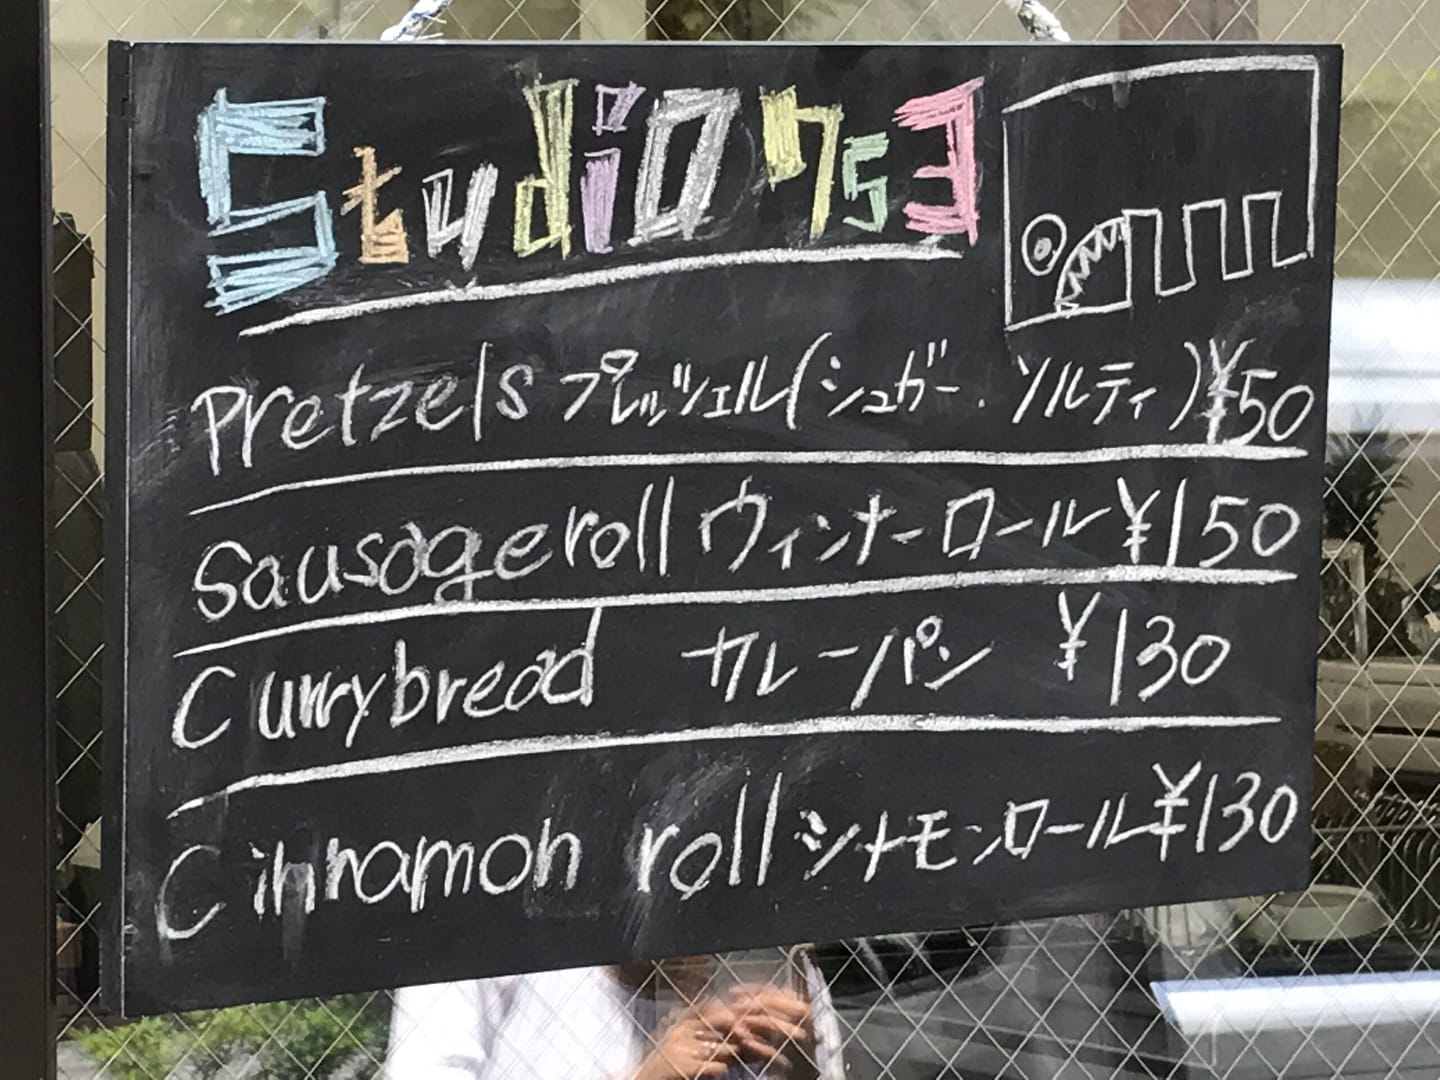 Studio 753
Pretzels プレッツェル(シュガー.ソルティ)¥50
Sausage roll ウィンナーロール ¥150
Curry bread カレーパン ¥130
Cinnamon roll シナモンロール ¥130